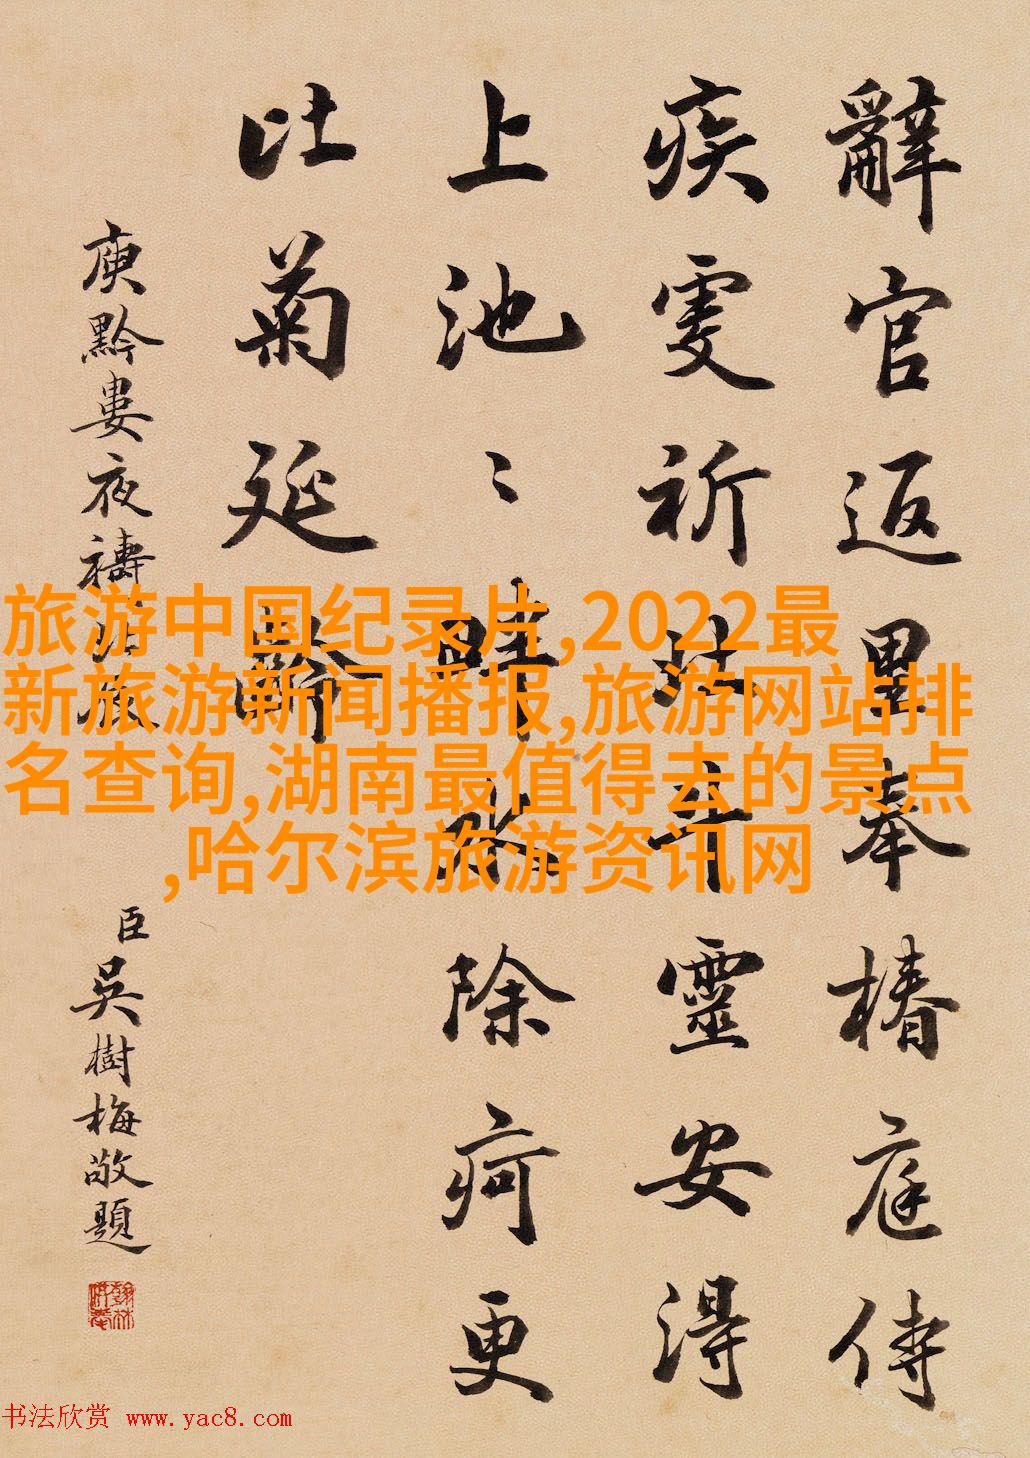 辭官返里奉椿庭侍
疾虔祈北斗靈安得
上池〻畔水除疴更
比菊延齡
庾黔婁夜禱北辰
臣吳樹梅敬題
旅游中国纪录片,2022最
新旅游新闻播报,旅游网站排
名查询,湖南最值得去的景点
,哈尔滨旅游资讯网
书法欣赏 www.yac8.com